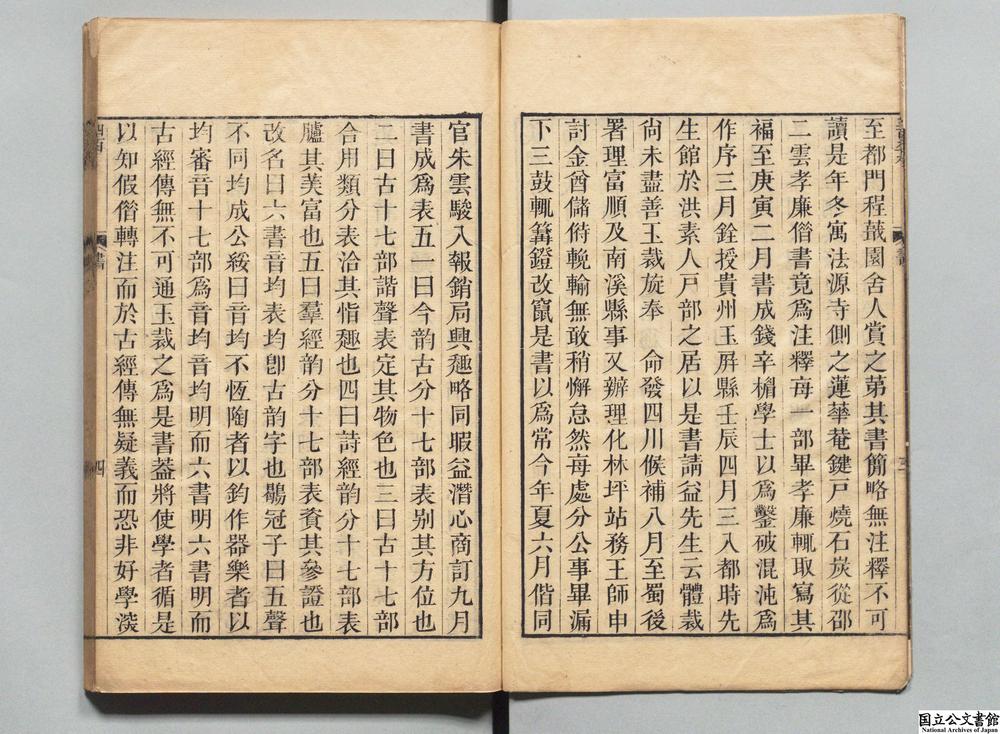 至都門程蕺園舍人賞之弟其書簡略無注釋不可
讀是年冬寓法源寺側之蓮華菴鍵戸燒石炭從邵
二雲孝廉借書竟爲注釋每一部畢孝廉輒取寫其
福至庚寅二月書成錢辛楣學士以爲鑿破混沌爲
作序三月銓授貴州玉屏縣壬辰四月三入都時先
生館於洪素人戸部之居以是書請益先生云體裁
尙未盡善玉裁旋奉　命發四川候補八月至蜀後
署理富順及南溪縣事又辦理化林坪站務王師申
討金酋儲偫輓輸無敢稍懈怠然每處分公事畢漏
下三鼓輒篝鐙改竄是書以爲常今年夏六月偕同
官朱雲駿入報銷局興趣略同暇益潛心商訂九月
書成爲表五一曰今韵古分十七部表别其方位也
二曰古十七部諧聲表定其物色也三曰古十七部
合用類分表洽其恉趣也四曰詩經韵分十七部表
臚其美富也五曰羣經韵分十七部表資其參證也
改名曰六書音均表均卽古韵字也鶡冠子曰五聲
不同均成公綏曰音均不恆陶者以鈞作器樂者以
均審音十七部爲音均音均明而六書明六書明而
古經傳無不可通玉裁之爲是書葢將使學者循是
以知假借轉注而於古經傳無疑義而恐非好學湥
書
四
国立公文書館
National Archives of Japan